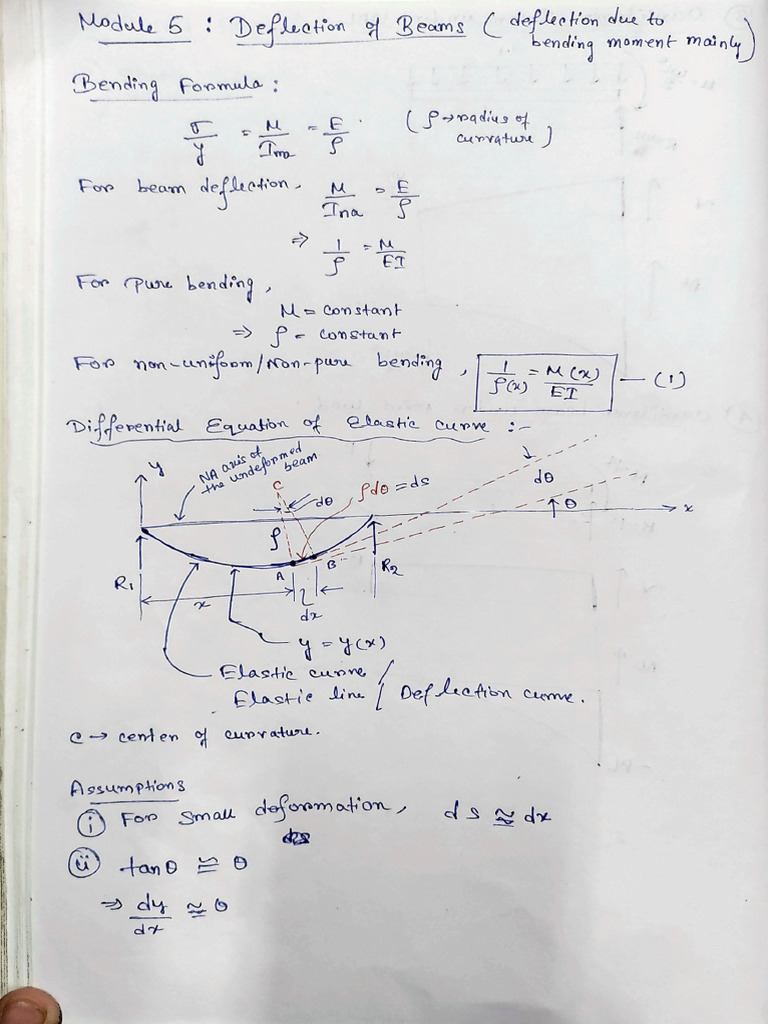 Module 5 : Deflection of Beams ( deflection due to
bending moment mainly )
Bending Formula :
σ/y = M/Ina = E/ρ ( ρ → radius of
curvature )
For beam deflection, M/Ina = E/ρ
⇒ 1/ρ = M/EI
For pure bending,
M = constant
⇒ ρ = constant
For non-uniform/Non-pure bending, 1/ρ(x) = M(x)/EI — (1)
Differential Equation of Elastic curve :-
y
NA axis of
the undeformed
beam
C
dθ
ρdθ = ds
dθ
θ
x
ρ
A
B
R1
R2
x
dx
y = y(x)
Elastic curve /
Elastic line / Deflection curve.
C → center of curvature.
Assumptions
(i) For small deformation, ds ≅ dx
ds
(ii) tanθ ≅ θ
⇒ dy/dx ≅ θ